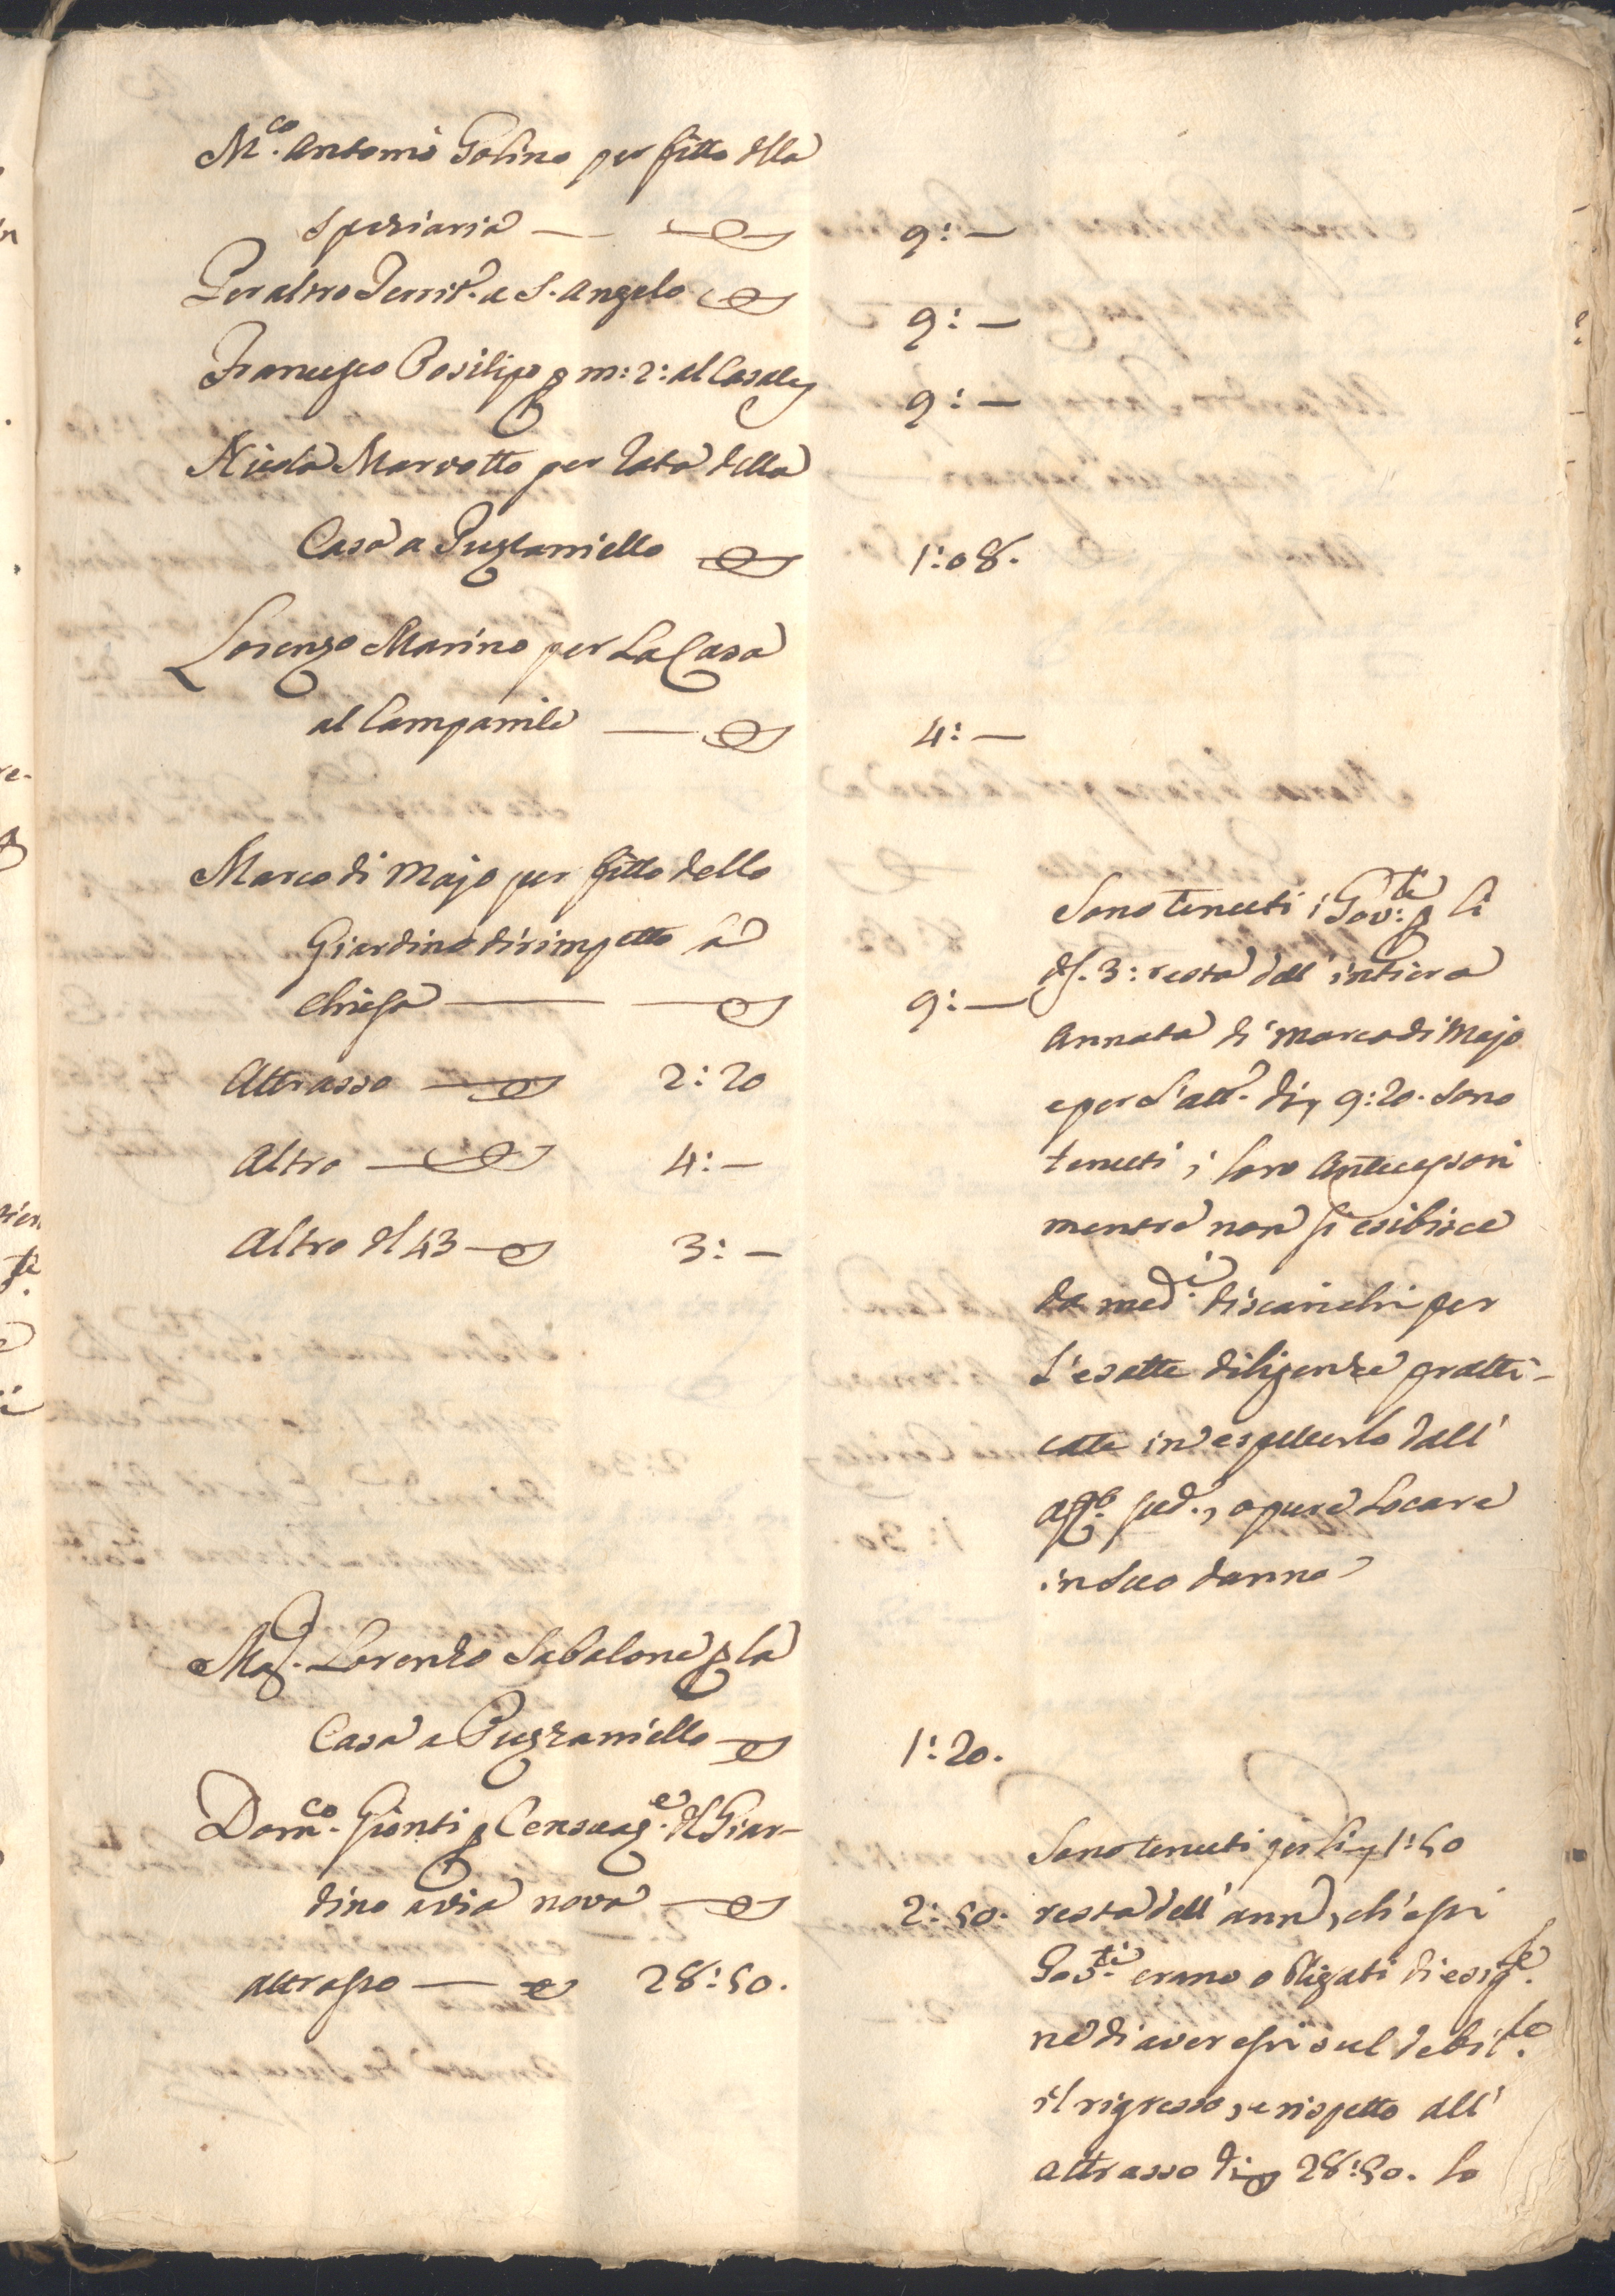 M.co Antonio Golino per fitto della
Speziaria 9: —
Per altro Territ.o a S. Angelo 9: —
Francesco Posilipo p m: 2: al Casale 9: —
Nicola Marvotto per rata della
Casa a Puzzaniello 1:08.
Lorenzo Marino per La Casa
al Campanile 4: —
Marco di Majo per fitto dello
Giardino dirimpetto a
Chiesa 9: —
Attrasso 2:20
Altro 4: —
Altro del 43 3: —
Sono tenuti i Gov.ti p li
3: resta dell' intiera
Annata di Marco di Majo
e per l'att.o di 9:20. sono
tenuti i loro Antecessori
mentre non si esibisce
da med.i discarichi per
l'esatte diligenze pratti-
cate in espellerlo dall'
aff.o sud.o, opure Locare
in suo danno
Mag. Lorenzo Sabalone p la
Casa a Puzzaniello 1:20.
Dom.co Gionti p Censuaz.e del Giar-
dino a via nova 2:50.
attrasso 28:50.
Sono tenuti per li 1:50
resta dell' ann.a, ch'essi
Gov.ti erano obligati di esig.e
ne di aver essi sul debit.e
il rigresso, e rispetto all'
attrasso di 28:50. lo